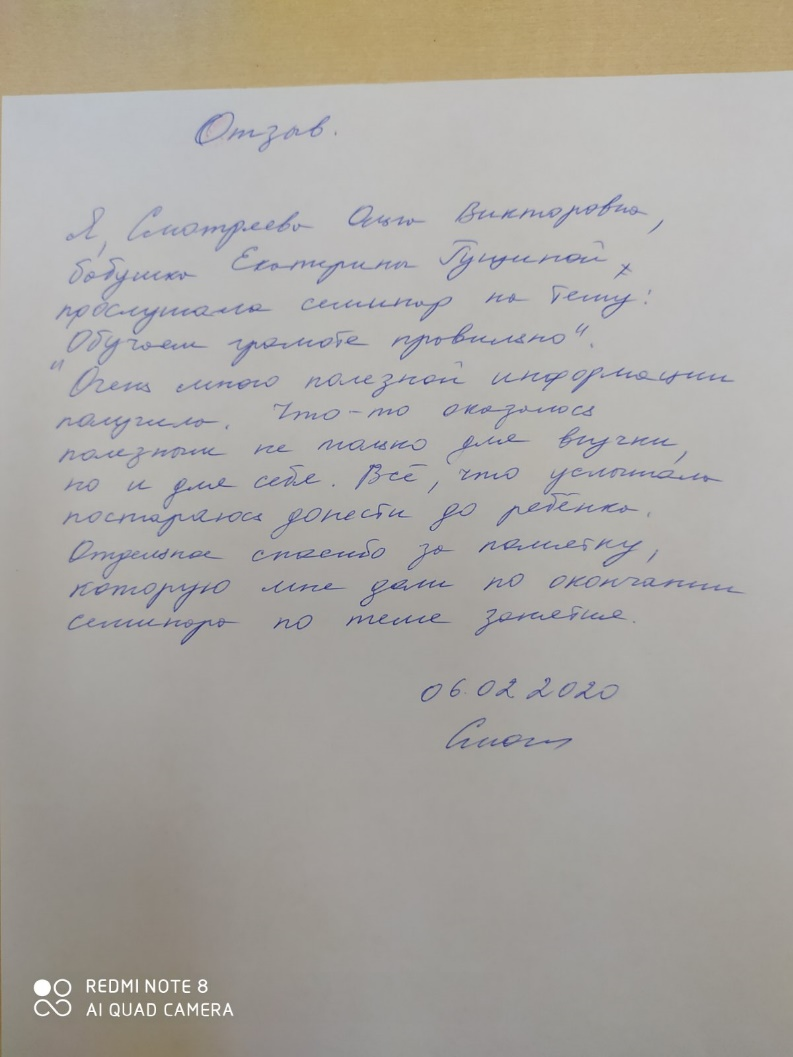 Отзыв.
Я, Смотряева Ольга Викторовна,
бабушка Екатерины Гущиной,
прослушала семинар на тему:
"Обучаем грамоте правильно".
Очень много полезной информации
получила. Что-то оказалось
полезным не только для внучки,
но и для себя. Всё, что услышала
постараюсь донести до ребёнка.
Отдельное спасибо за памятку,
которую мне дали по окончании
семинара по теме занятия.
06.02 2020
REDMI NOTE 8
AI QUAD CAMERA